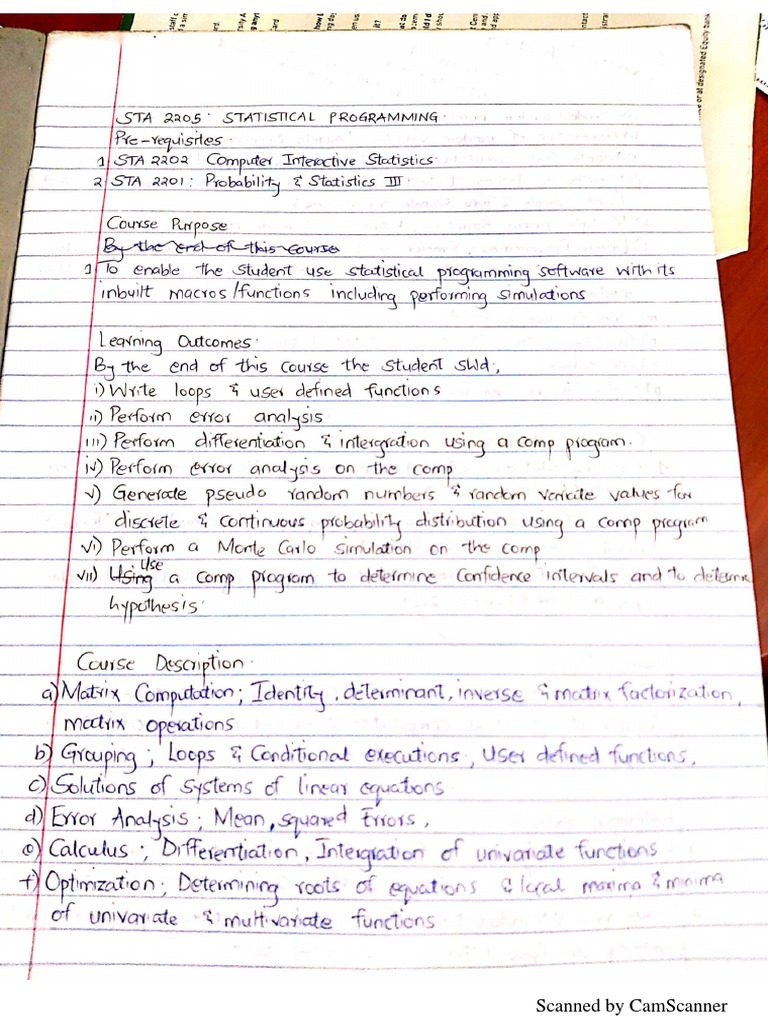 STA 2205: STATISTICAL PROGRAMMING
Pre-requisites
1 STA 2202 Computer Interactive Statistics
2 STA 2201: Probability & Statistics III
Course Purpose
By the end of this course
1 To enable the student use statistical programming software with its
inbuilt macros/functions including performing simulations
Learning Outcomes
By the end of this course the student shld;
i) Write loops & user defined functions
ii) Perform error analysis
iii) Perform differentiation & intergration using a comp program.
iv) Perform error analysis on the comp
v) Generate pseudo random numbers & random variate values for
discrete & continuous probability distribution using a comp program
vi) Perform a Monte Carlo simulation on the comp
Use
vii) Using a comp program to determine Confidence intervals and to determine
hypothesis.
Course Description.
a) Matrix Computation; Identity, determinant, inverse & matrix factorization,
matrix operations
b) Grouping; Loops & Conditional executions, User defined functions,
c) Solutions of systems of linear equations
d) Error Analysis; Mean, squared Errors,
e) Calculus; Differentiation, Intergration of univariate functions
f) Optimization; Determining roots of equations & local maxima & minima
of univariate & multivariate functions
Scanned by CamScanner